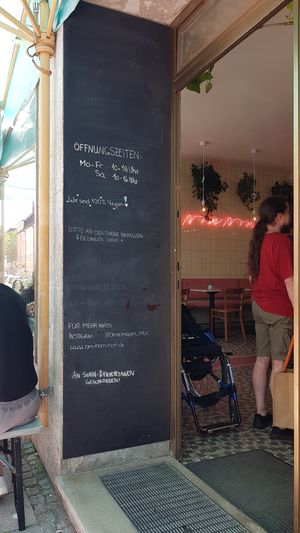 ÖFFNUNGSZEITEN:
Mo-Fr 10-18 Uhr
Sa 10-16 Uhr
Wir sind 100% Vegan!
BITTE AN DER THEKE BESTELLEN
& BEZAHLEN DANKE
FÜR MEHR INFOS
INSTAGRAM
www.om-nom-nom.de
AN SONN- & FEIERTAGEN
GESCHLOSSEN!
Nom Nom